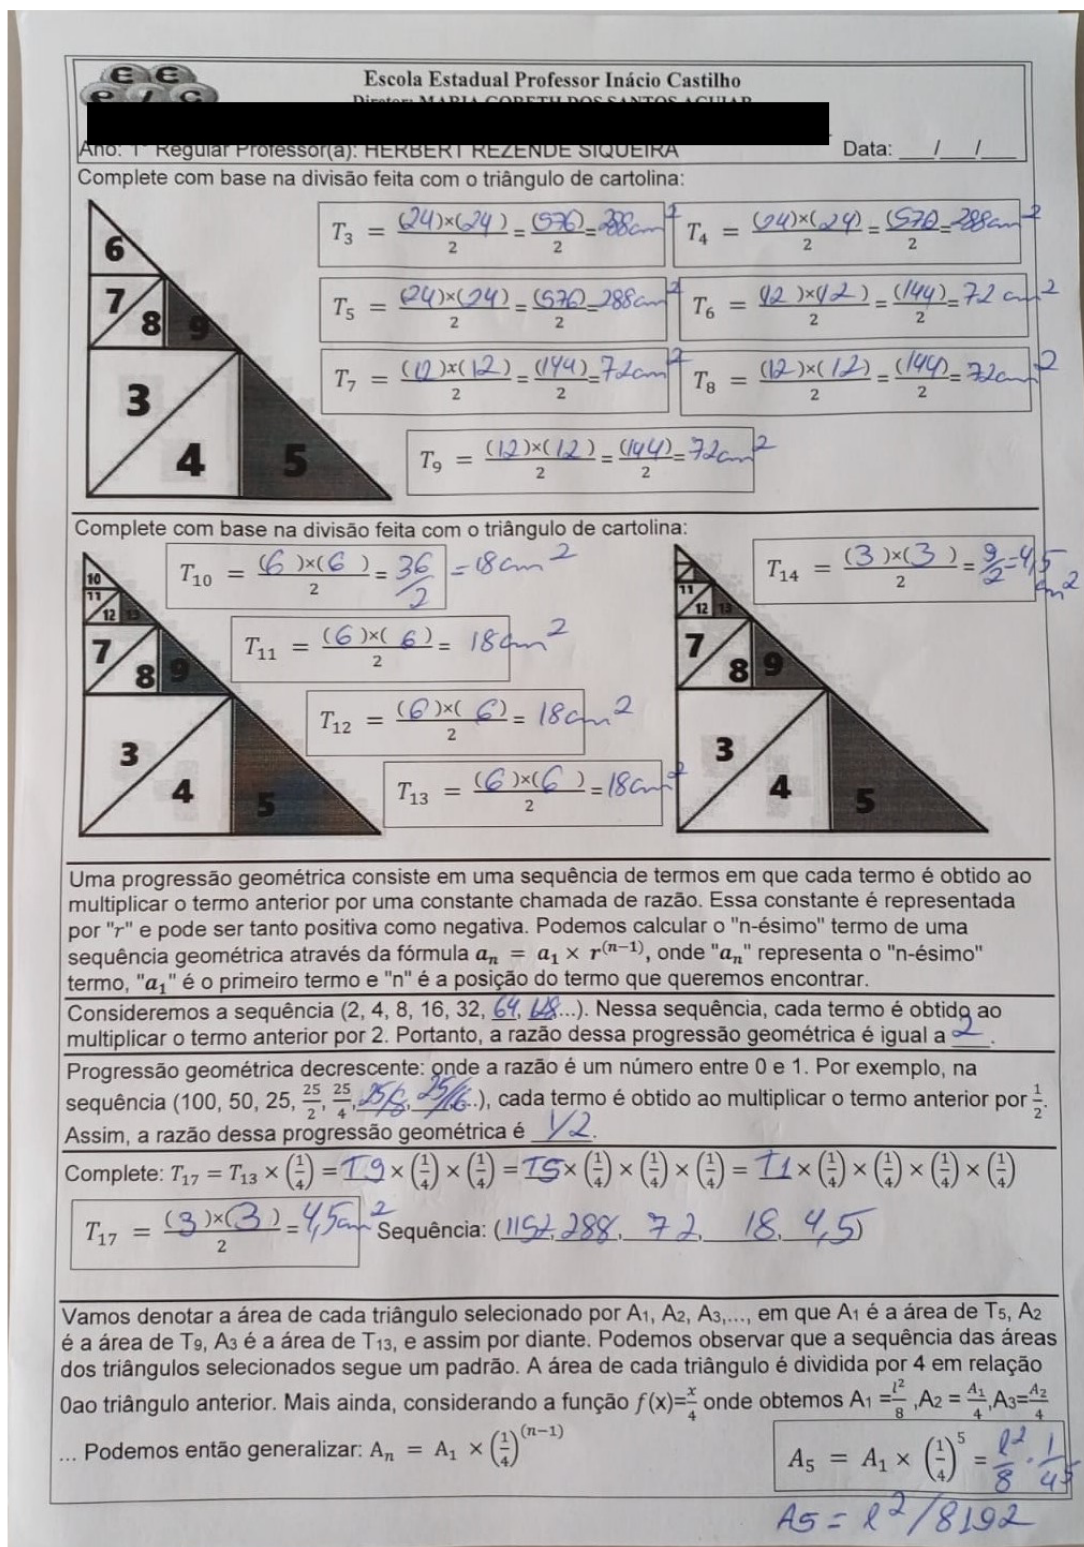 Escola Estadual Professor Inácio Castilho
Diretor: MARIA GORETH DOS SANTOS AGUIAR
Ano: 1° Regular Professor(a): HERBERT REZENDE SIQUEIRA Data: ___/___/___
Complete com base na divisão feita com o triângulo de cartolina:
6
7 8 9
3 4 5
T₃ = (24)×(24)/2 = (576)/2 = 288cm² T₄ = (24)×(24)/2 = (576)/2 = 288cm²
T₅ = (24)×(24)/2 = (576)/2 = 288cm² T₆ = (12)×(12)/2 = (144)/2 = 72 cm²
T₇ = (12)×(12)/2 = (144)/2 = 72cm² T₈ = (12)×(12)/2 = (144)/2 = 72cm²
T₉ = (12)×(12)/2 = (144)/2 = 72cm²
Complete com base na divisão feita com o triângulo de cartolina:
10
11 12 13
7 8 9
3 4 5
T₁₀ = (6)×(6)/2 = 36/2 = 18cm²
T₁₁ = (6)×(6)/2 = 18cm²
T₁₂ = (6)×(6)/2 = 18cm²
T₁₃ = (6)×(6)/2 = 18cm²
11 12 13
7 8 9
3 4 5
T₁₄ = (3)×(3)/2 = 9/2 = 4,5 cm²
Uma progressão geométrica consiste em uma sequência de termos em que cada termo é obtido ao
multiplicar o termo anterior por uma constante chamada de razão. Essa constante é representada
por "r" e pode ser tanto positiva como negativa. Podemos calcular o "n-ésimo" termo de uma
sequência geométrica através da fórmula aₙ = a₁ × r⁽ⁿ⁻¹⁾, onde "aₙ" representa o "n-ésimo"
termo, "a₁" é o primeiro termo e "n" é a posição do termo que queremos encontrar.
Consideremos a sequência (2, 4, 8, 16, 32, 64, 128...). Nessa sequência, cada termo é obtido ao
multiplicar o termo anterior por 2. Portanto, a razão dessa progressão geométrica é igual a 2.
Progressão geométrica decrescente: onde a razão é um número entre 0 e 1. Por exemplo, na
sequência (100, 50, 25, 25/2, 25/4, 25/8, 25/16...), cada termo é obtido ao multiplicar o termo anterior por 1/2.
Assim, a razão dessa progressão geométrica é 1/2.
Complete: T₁₇ = T₁₃ × (1/4) = T9 × (1/4) × (1/4) = T5 × (1/4) × (1/4) × (1/4) = T1 × (1/4) × (1/4) × (1/4) × (1/4)
T₁₇ = (3)×(3)/2 = 4,5cm² Sequência: (1152, 288, 72, 18, 4,5)
Vamos denotar a área de cada triângulo selecionado por A₁, A₂, A₃,..., em que A₁ é a área de T₅, A₂
é a área de T₉, A₃ é a área de T₁₃, e assim por diante. Podemos observar que a sequência das áreas
dos triângulos selecionados segue um padrão. A área de cada triângulo é dividida por 4 em relação
0ao triângulo anterior. Mais ainda, considerando a função f(x)=x/4 onde obtemos A₁ =l²/8 ,A₂ = A₁/4,A₃=A₂/4
... Podemos então generalizar: Aₙ = A₁ × (1/4)⁽ⁿ⁻¹⁾
A₅ = A₁ × (1/4)⁵ = l²/8 · 1/4⁵
A5 = l²/8192